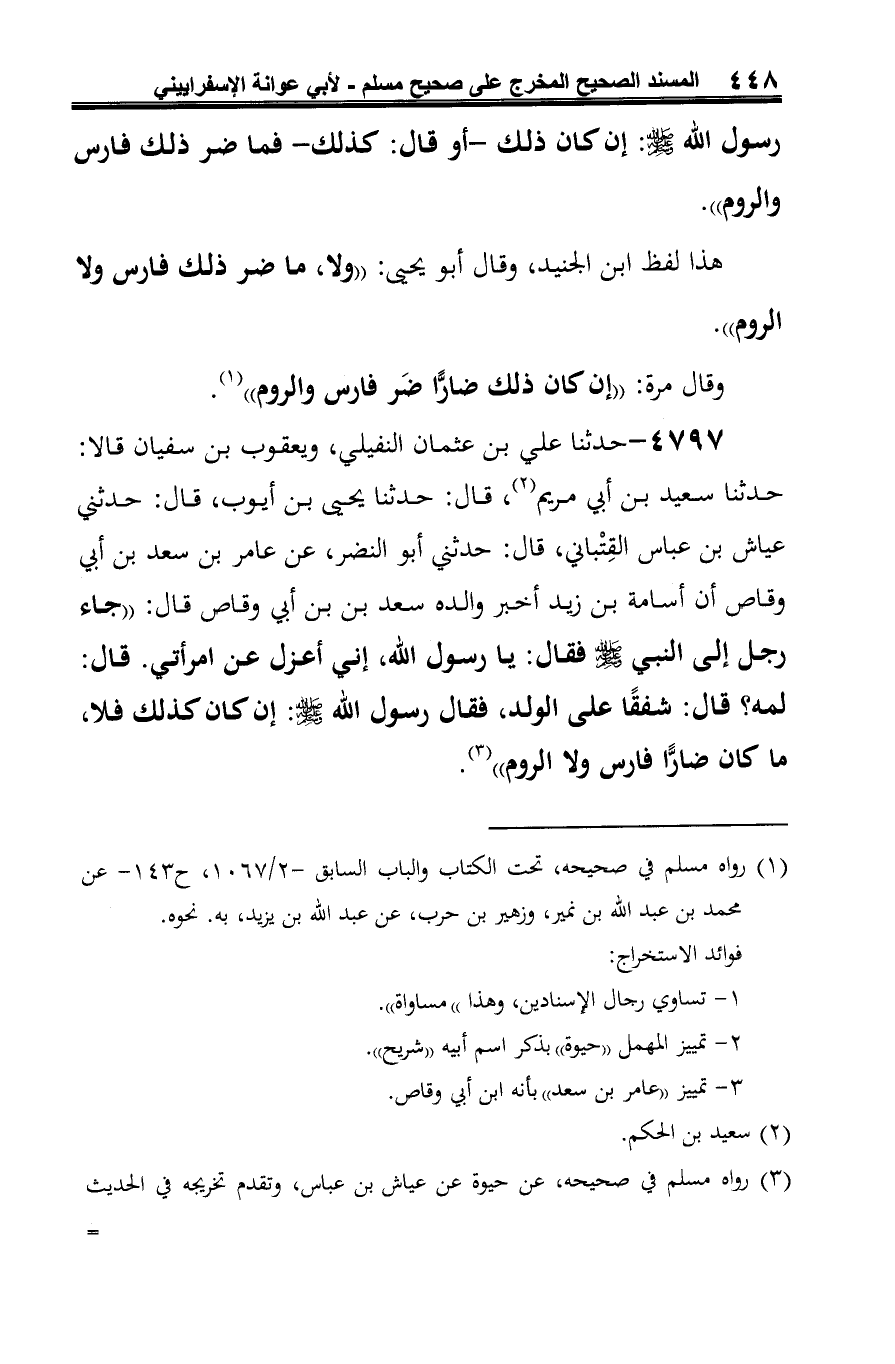 ٤٤٨ المسند الصحيح المخرج على صحيح مسلم - لأبي عوانة الإسفراييني
رسول الله ﷺ: إن كان ذلك -أو قال: كذلك- فما ضر ذلك فارس
والروم)).
هذا لفظ ابن الجنيد، وقال أبو يحيى: ((ولا، ما ضر ذلك فارس ولا
الروم)).
وقال مرة: ((إن كان ذلك ضارًّا ضَر فارس والروم))(١).
٤٧٩٧-حدثنا علي بن عثمان النفيلي، ويعقوب بن سفيان قالا:
حدثنا سعيد بن أبي مريم(٢)، قال: حدثنا يحيى بن أيوب، قال: حدثني
عياش بن عباس القِتْباني، قال: حدثني أبو النضر، عن عامر بن سعد بن أبي
وقاص أن أسامة بن زيد أخبر والده سعد بن بن أبي وقاص قال: ((جاء
رجل إلى النبي ﷺ فقال: يا رسول الله، إني أعزل عن امرأتي. قال:
لمه؟ قال: شفقًا على الولد، فقال رسول الله ﷺ: إن كان كذلك فلا،
ما كان ضارًّا فارس ولا الروم))(٣).
(١) رواه مسلم في صحيحه، تحت الكتاب والباب السابق -١٠٦٧/٢، ح١٤٣- عن
محمد بن عبد الله بن نمير، وزهير بن حرب، عن عبد الله بن يزيد، به. نحوه.
فوائد الاستخراج:
١- تساوي رجال الإسنادين، وهذا ))مساواة)).
٢- تمييز المهمل ((حيوة)) بذكر اسم أبيه ((شريح)).
٣- تمييز ((عامر بن سعد)) بأنه ابن أبي وقاص.
(٢) سعيد بن الحكم.
(٣) رواه مسلم في صحيحه، عن حيوة عن عياش بن عباس، وتقدم تخريجه في الحديث
=